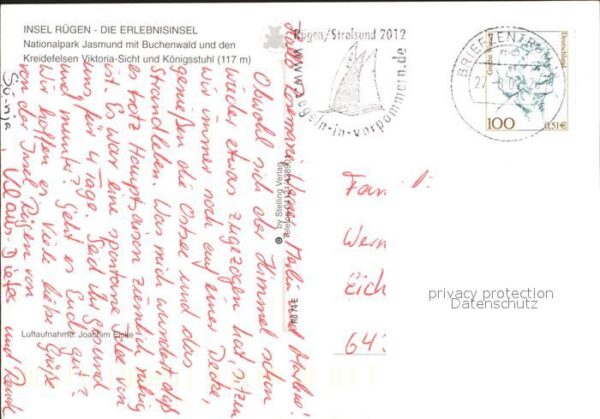 INSEL RÜGEN - DIE ERLEBNISINSEL
Nationalpark Jasmund mit Buchenwald und den
Kreidefelsen Viktoria-Sicht und Königsstuhl (117 m)
Luftaufnahme: Joachim
© by Stelling Verlag
Rügen/Stralsund 2012
www.segeln-in-vorpommern.de
BRIEFZENTRUM
Deutschland
100
0,51€
Hallo
Obwohl sich der Himmel schon
wieder etwas zugezogen hat, sitzen
wir immer noch auf einer Decke,
genießen die Ostsee und das
Strandleben. Was mich wundert, daß
es trotz Hauptsaison ziemlich ruhig
ist. Es war eine spontane Idee von
uns für 4 Tage. Seid ihr gesund
und munter? Geht es Euch gut?
Wir hoffen es. Viele liebe Grüße
von der Insel Rügen von
Klaus-Dieter und
Fam
Wern
Eich
64
privacy protection
Datenschutz